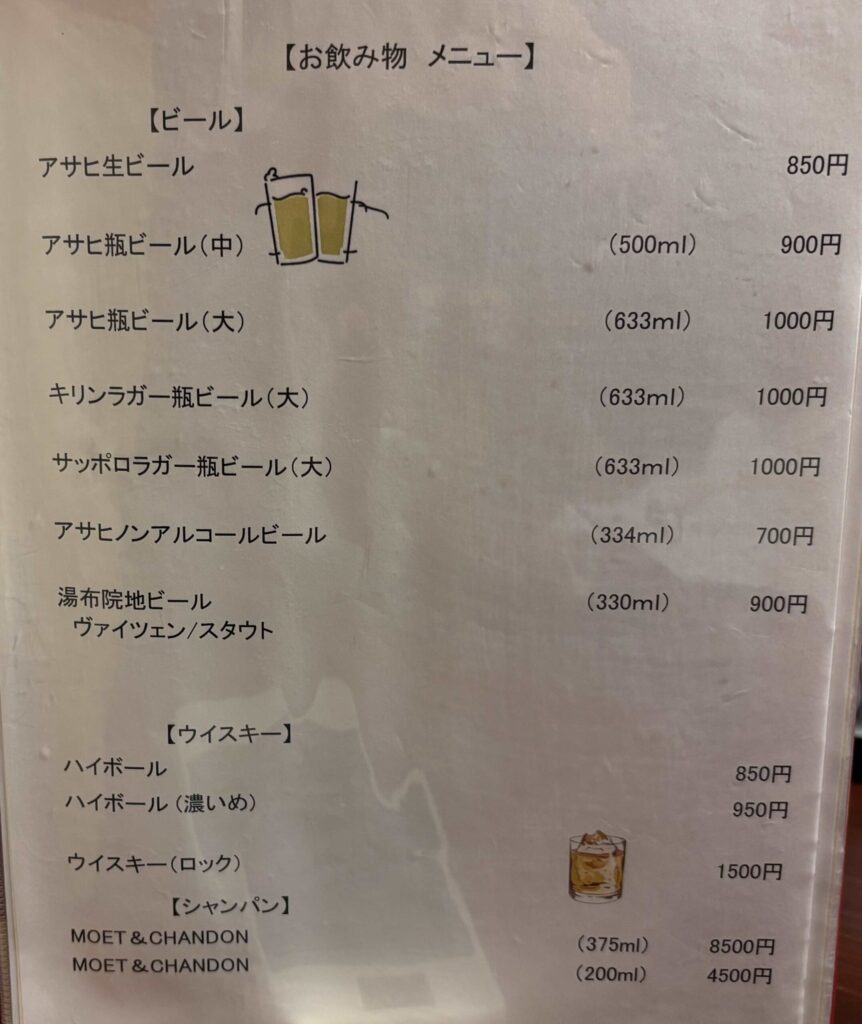 【お飲み物 メニュー】
【ビール】
アサヒ生ビール 850円
アサヒ瓶ビール(中) (500ml) 900円
アサヒ瓶ビール(大) (633ml) 1000円
キリンラガー瓶ビール(大) (633ml) 1000円
サッポロラガー瓶ビール(大) (633ml) 1000円
アサヒノンアルコールビール (334ml) 700円
湯布院地ビール (330ml) 900円
ヴァイツェン/スタウト
【ウイスキー】
ハイボール 850円
ハイボール(濃いめ) 950円
ウイスキー(ロック) 1500円
【シャンパン】
MOET&CHANDON (375ml) 8500円
MOET&CHANDON (200ml) 4500円